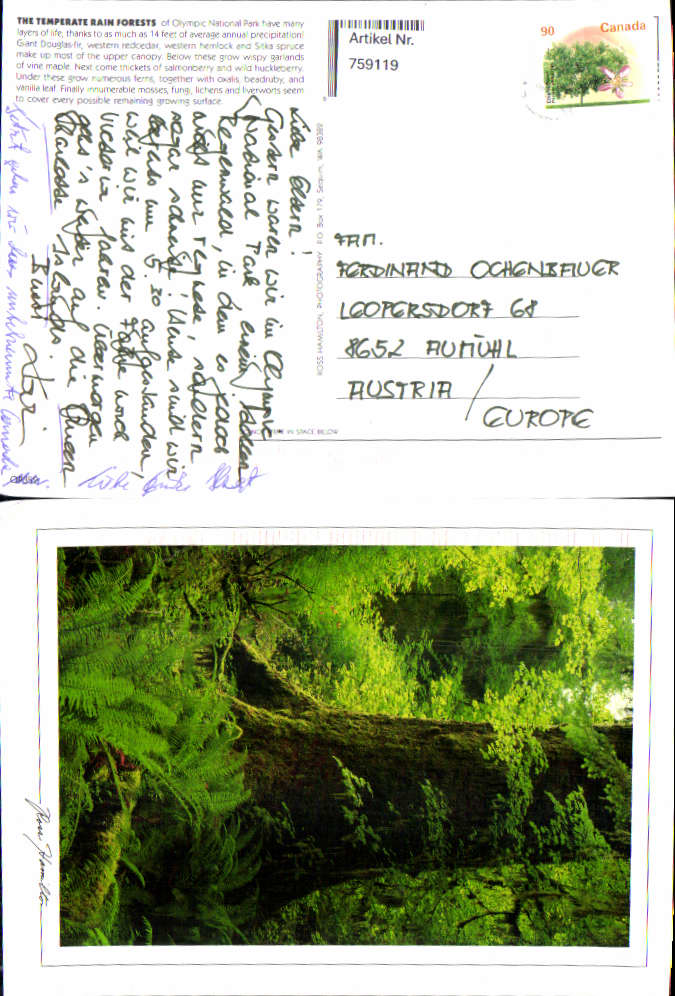 THE TEMPERATE RAIN FORESTS of Olympic National Park have many
layers of life, thanks to as much as 14 feet of average annual precipitation!
Giant Douglas-fir, western redcedar, western hemlock and Sitka spruce
make up most of the upper canopy. Below these grow wispy garlands
of vine maple. Next come thickets of salmonberry and wild huckleberry.
Under these grow numerous ferns, together with oxalis, beadruby, and
vanilla leaf. Finally innumerable mosses, fungi, lichens and liverworts seem
to cover every possible remaining growing surface.
Artikel Nr.
759119
90 Canada
Liebe Eltern!
Gestern waren wir im Olympic
National Park, einem kalten
Regenwald, in dem es jedoch
nicht nur regnete, sondern
sogar schneite! Heute sind wir
bereits um 5.30 aufgestanden,
weil wir mit der Fähre nach
Victoria fahren. Übermorgen
geht's weiter auf die Queen
Charlotte Islands.
Bussi
Jetzt gehen wir dem unbekannten Canada
Liebe Grüße
ROSS HAMILTON, PHOTOGRAPHY P.O. Box 179, Sequim, WA 98382
FAM.
FERDINAND OCHENBAUER
LEOPERSDORF 68
8652 AUMÜHL
AUSTRIA /
EUROPE
IN SPACE BELOW
Ross Hamilton